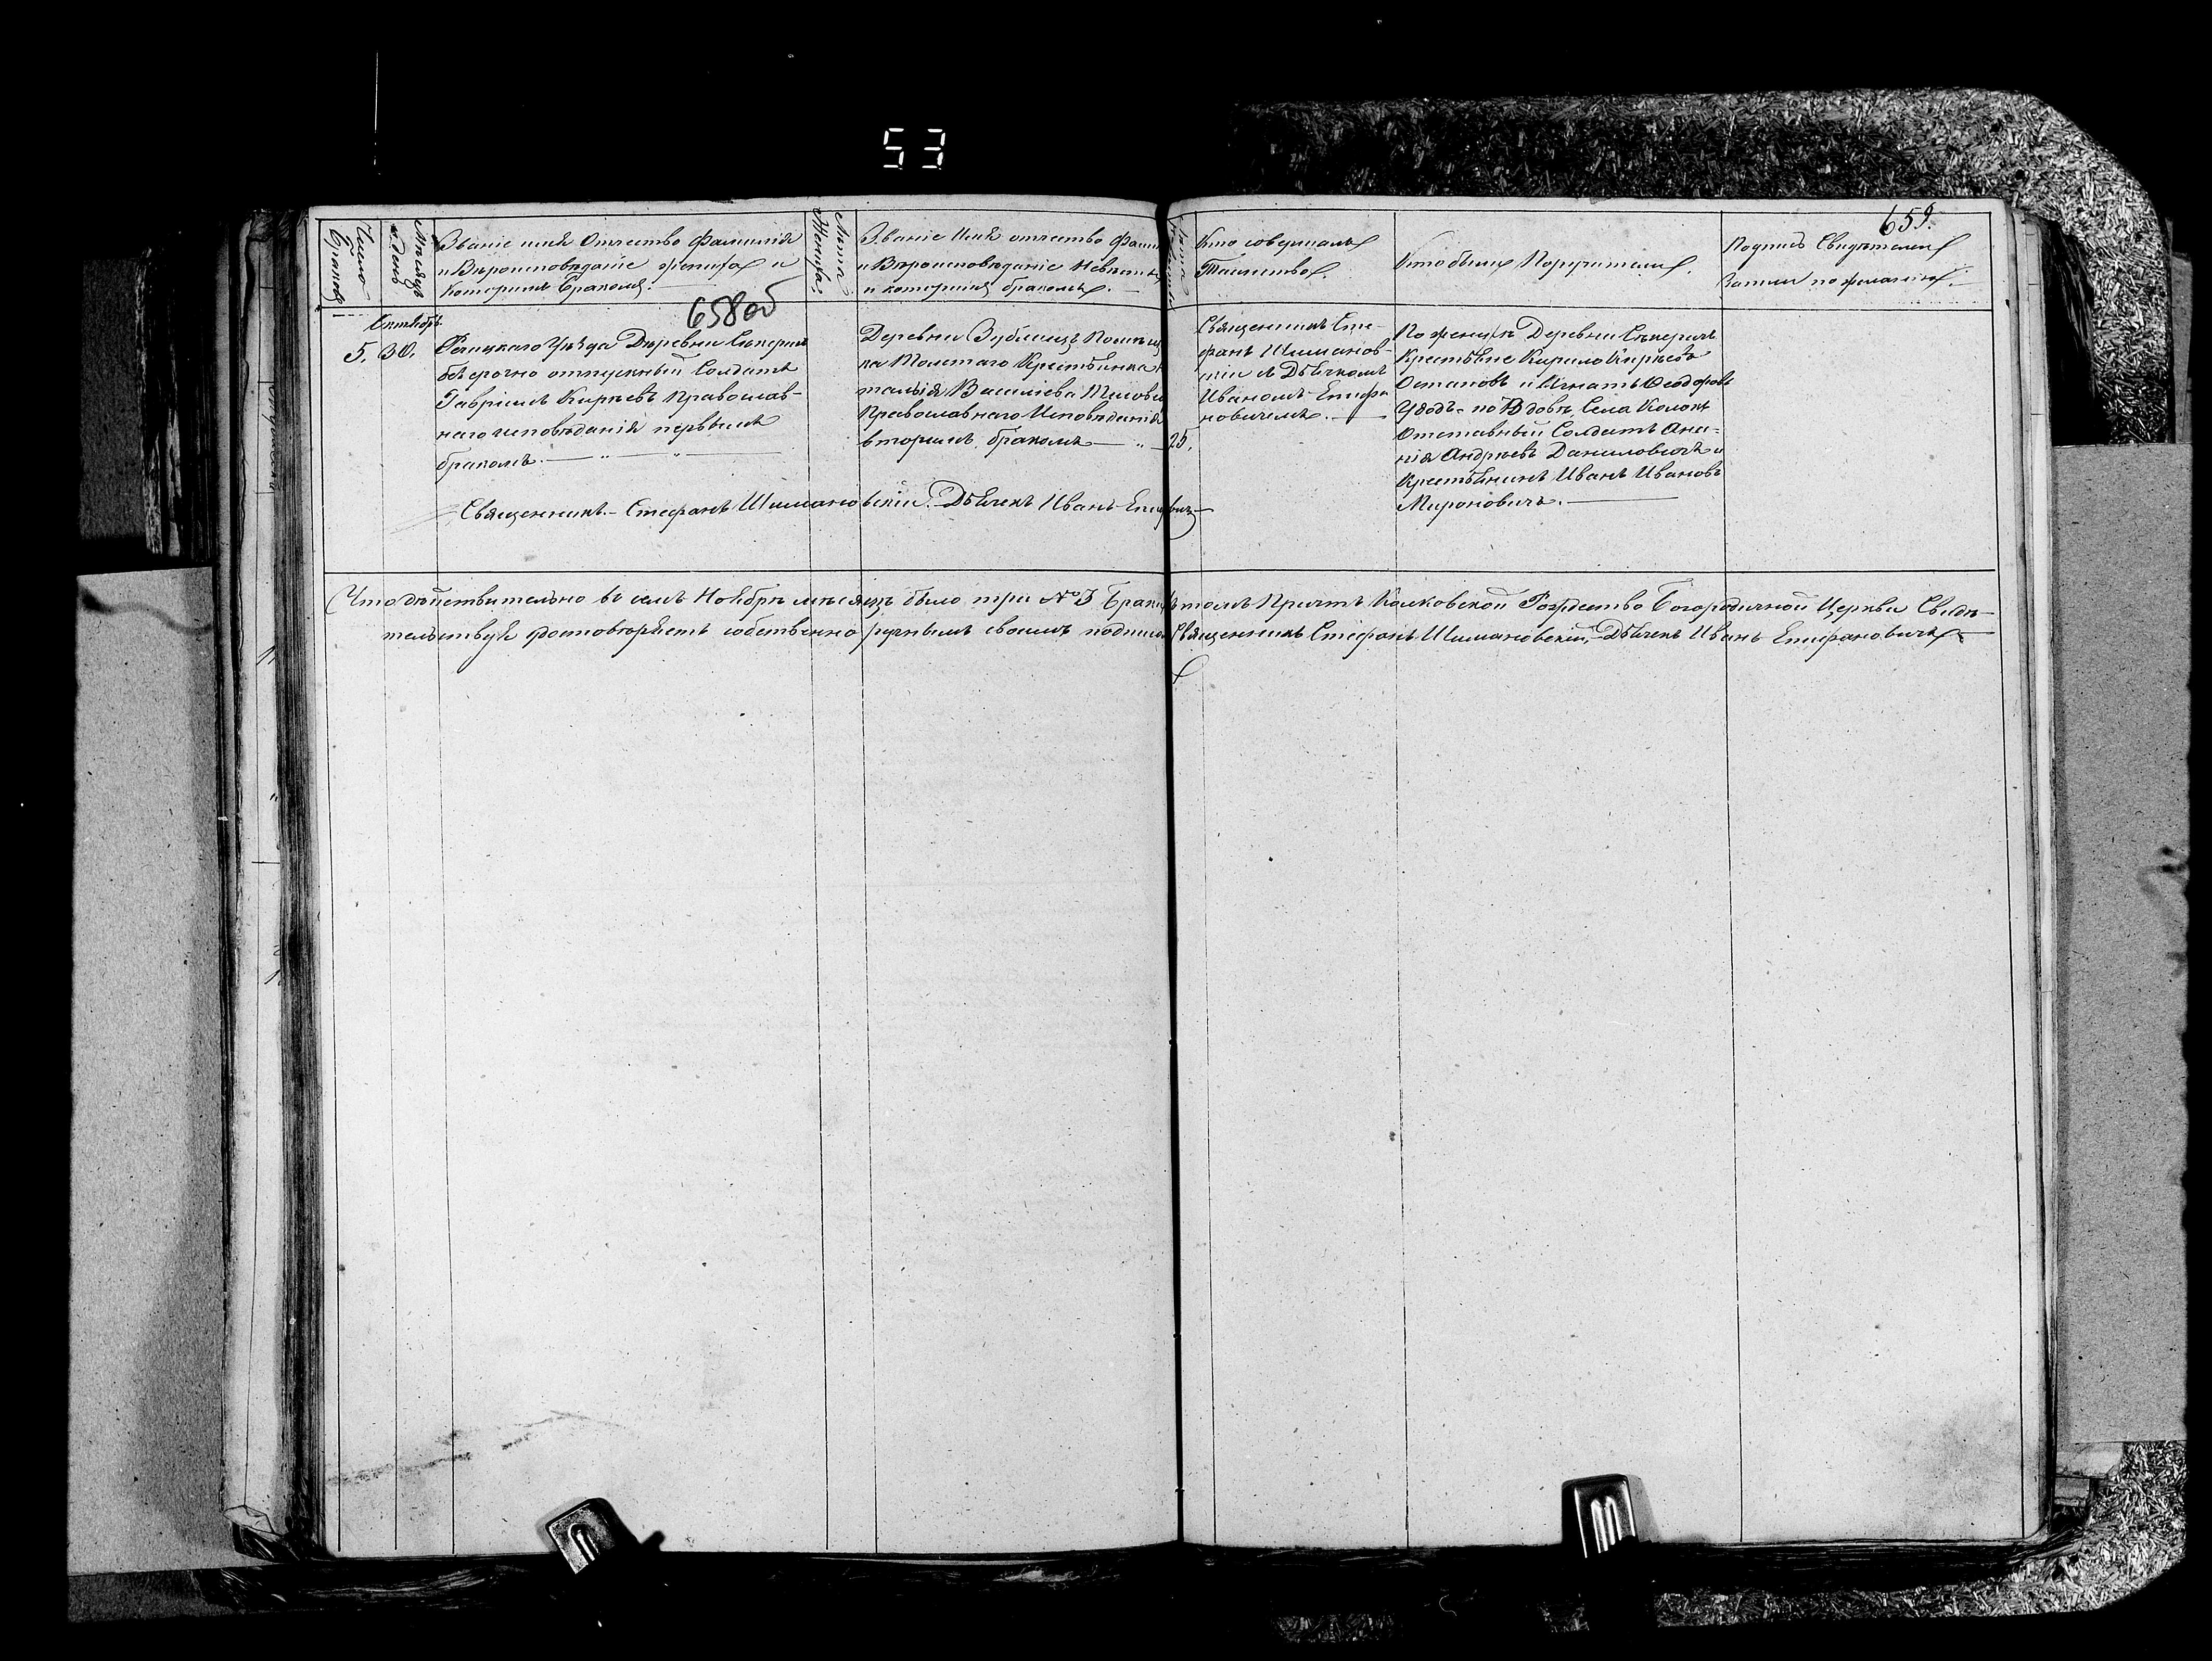 53
659.
658 об
Число Браковъ
Мѣсяцъ и День
Званіе имя Отчество Фамилія
и Вѣроисповѣданіе жениха и
Которымъ бракомъ.
Лѣта Жениха.
Званіе Имя отчество Фами
и Вѣроисповѣданіе Невѣсты
и которымъ бракомъ.
Кто совершалъ
Таинство
Кто были Поручители.
Подпись Свидѣтелей
Записи по желанію.
Октябрь
5. 30.
Рѣчицкаго Уѣзда Деревни
безсрочно отпускный Солдатъ
Гавріилъ Карпѣевъ Православ-
наго исповѣданія первымъ
бракомъ.
Деревни Помѣщи
ка Толстаго Крестьянка
талія Василіева
Православнаго Исповѣданія
вторымъ бракомъ
25.
Священникъ Сте-
фанъ Шиманов-
скій съ Дьячкомъ
Иваномъ Епифа
новичемъ.
По женихѣ Деревни
Крестьяне Кирило
Остаповъ и Игнатъ Феодоровъ
по Вдовѣ Села
Отставный Солдатъ Ана-
нія Андреевъ Даниловичъ и
Крестьянинъ Иванъ Ивановъ
Мироновичъ.
Священникъ Стефанъ Шимановскій. Дьячекъ Иванъ
Что дѣйствительно въ семъ Ноябрѣ мѣсяцѣ было три № 3 Брака въ томъ Причтъ Колковской Рождество Богородичной Церкви Свидѣ-
тельствуя собственно ручнымъ своимъ подписомъ Священникъ Стефанъ Шимановскій, Дьячекъ Иванъ Епифановичъ